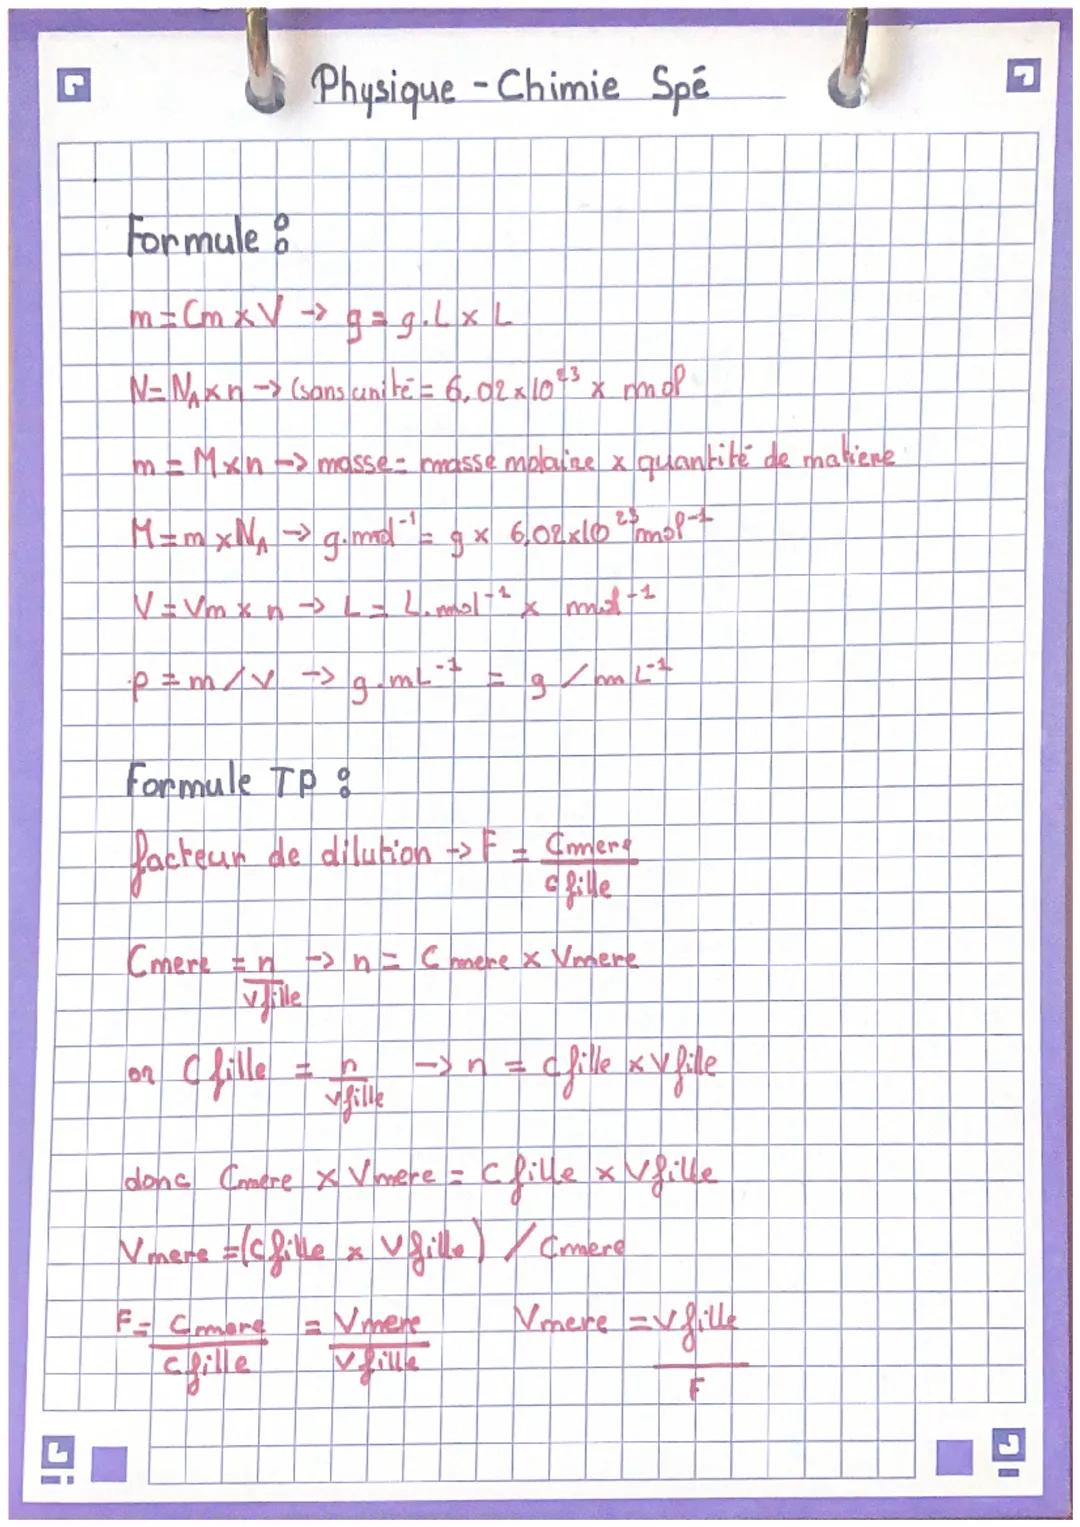 Physique - Chimie Spé
Formule :
m = Cm x V -> g = g.L x L
N = NA x n -> (sans unité = 6,02 x 10²³ x mol
m = M x n -> masse = masse molaire x quantité de matiere
M = m x NA -> g.mol⁻¹ = g x 6,02x10²³ mol⁻¹
V = Vm x n -> L = L.mol⁻¹ x mol⁻¹
ρ = m / V -> g.mL⁻¹ = g / mL⁻¹
Formule TP :
facteur de dilution -> F = Cmere / Cfille
Cmere = n / Vfille -> n = Cmere x Vmere
or Cfille = n / Vfille -> n = Cfille x Vfille
donc Cmere x Vmere = Cfille x Vfille
Vmere = (Cfille x Vfille) / Cmere
F = Cmere / Cfille = Vmere / Vfille Vmere = Vfille / F